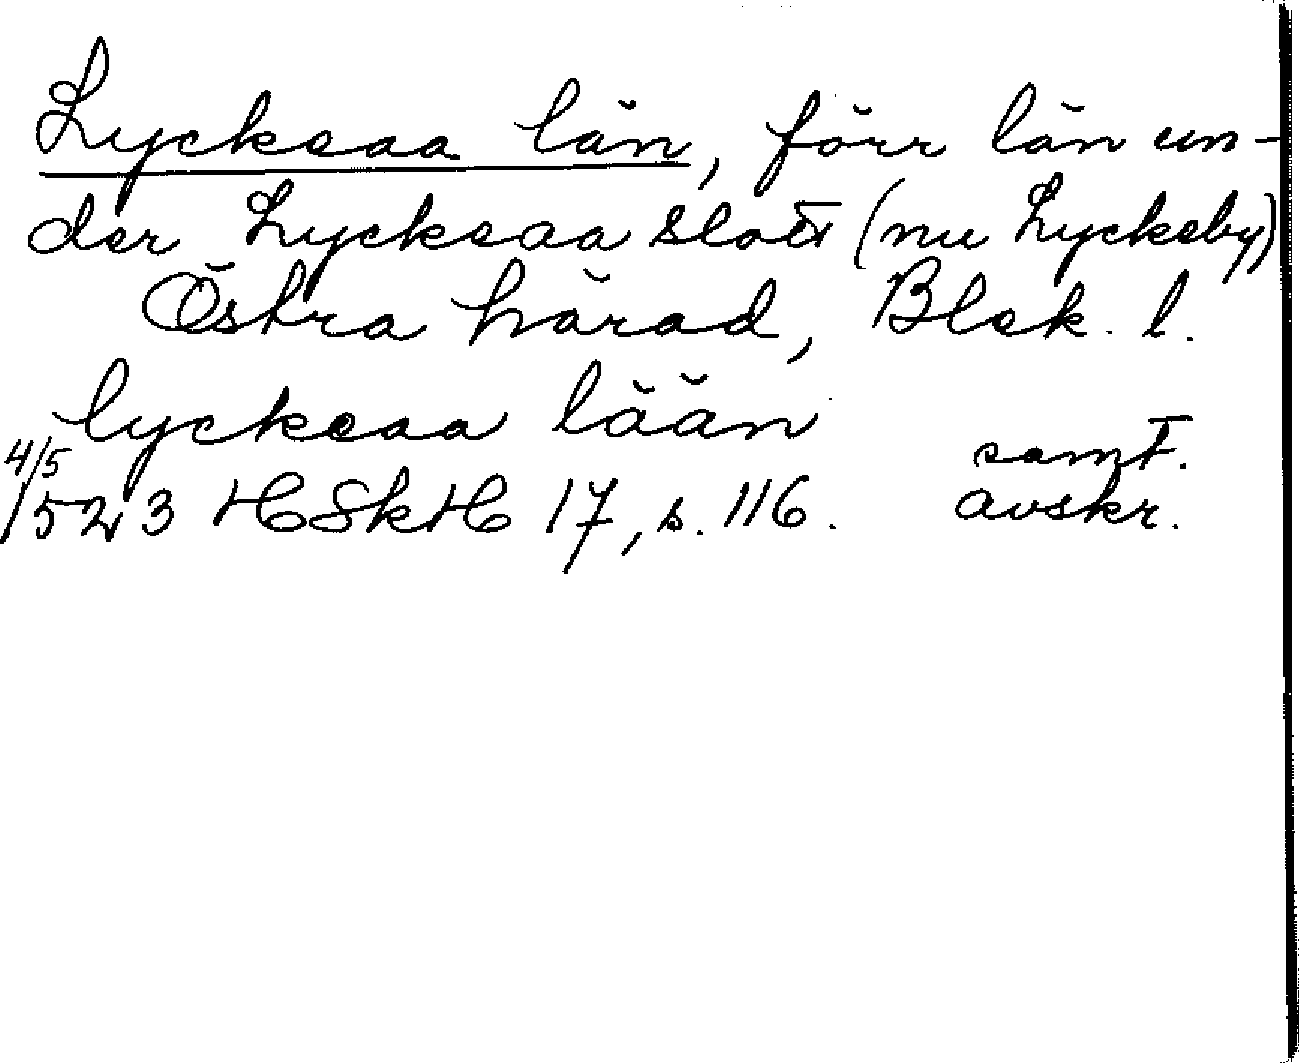 Lyckeaa län, förr län un-
der Lyckeaa slott (nu Lyckeby)
Östra härad, Blek. l.
lyckeaa lään
4/5 samt.
1523 HSkH 17, s. 116. avskr.